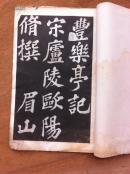 豐樂亭記
宋廬陵歐陽
脩撰 眉山